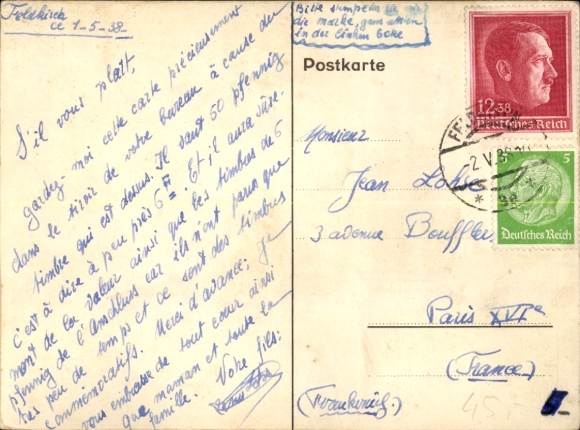 Feldkirch
le 1-5-38-
S'il vous plaît,
gardez-moi cette carte précieusement
dans le tiroir de votre bureau à cause du
timbre qui est dessus. Il vaut 50 pfennig
c'est à dire à peu près 6 Et il aura sûre-
ment de la valeur ainsi que les timbres de 5
pfennig de l'anschluss car ils n'ont paru que
très peu de temps et ce sont des timbres
commémoratifs. Merci d'avance; je
vous embrasse de tout cœur ainsi
que maman et toute la
famille. Votre fils:
Bitte
die marke, ganz
in der linken Ecke
Postkarte
12+38
Deutsches Reich
5
Deutsches Reich
-2.V.38
* *
Monsieur
Jean
3 avenue Bouffler
Paris XVIe
(France)
(Frankreich)
45,-